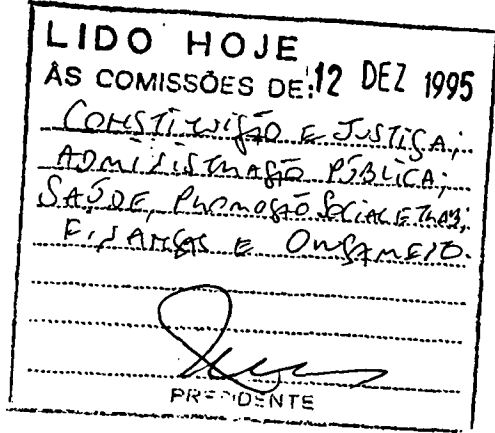 LIDO HOJE
ÀS COMISSÕES DE: 12 DEZ 1995
CONSTITUIÇÃO E JUSTIÇA;
ADMINISTRAÇÃO PÚBLICA;
SAÚDE, PROMOÇÃO SOCIAL E TRAB;
FINANÇAS E ORÇAMENTO.
PRESIDENTE